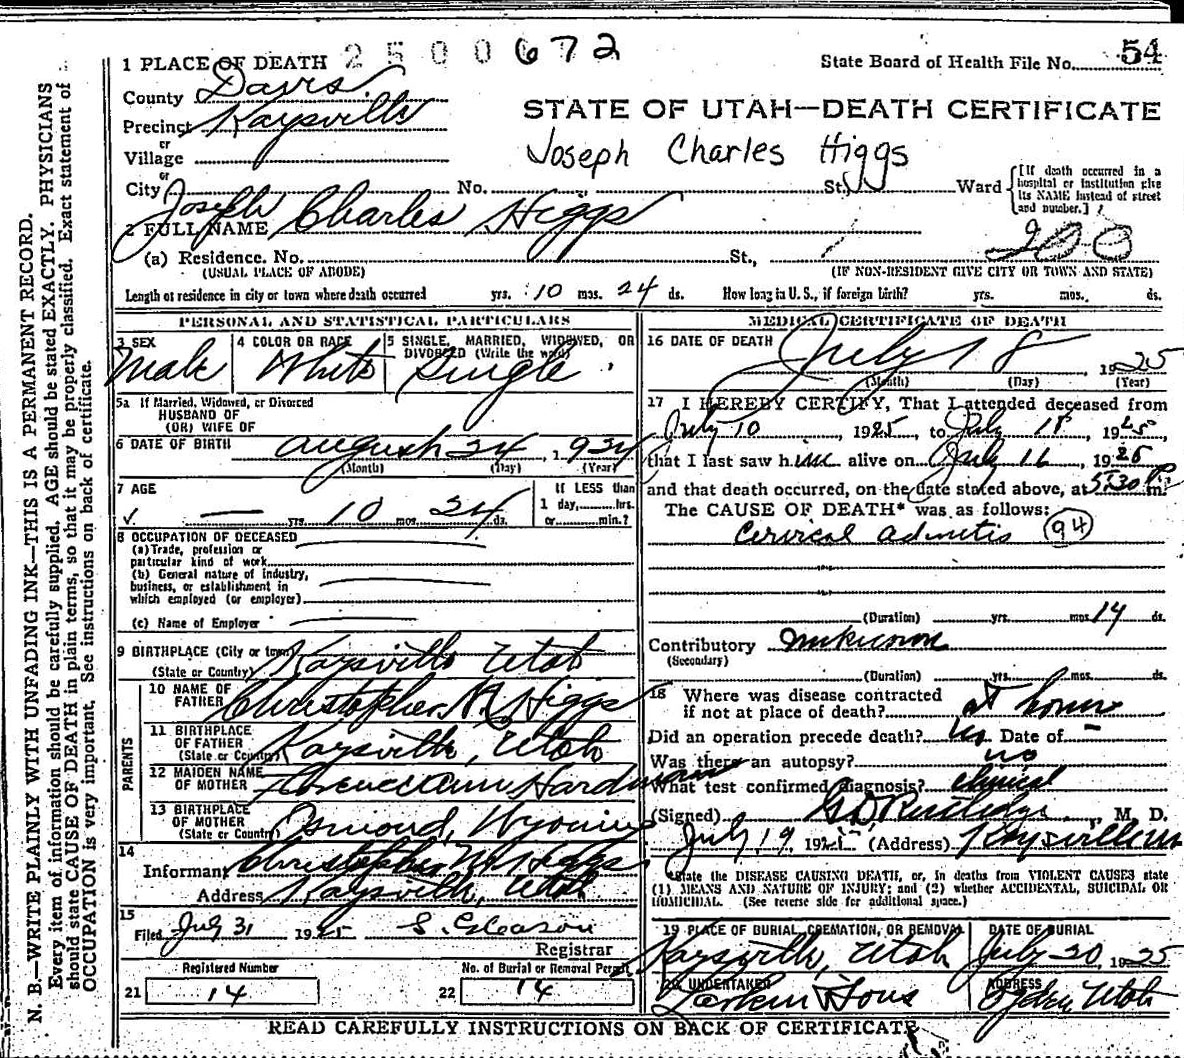 2500672
1 PLACE OF DEATH
State Board of Health File No. 54
County Davis.
STATE OF UTAH—DEATH CERTIFICATE
Precinct Kaysville
or
Village
Joseph Charles Higgs
or
City No. St. Ward
[If death occurred in a hospital or institution give its NAME instead of street and number.]
2 FULL NAME Joseph Charles Higgs
200
(a) Residence. No. St.,
(USUAL PLACE OF ABODE)
(IF NON-RESIDENT GIVE CITY OR TOWN AND STATE)
Length of residence in city or town where death occurred yrs. 10 mos. 24 ds. How long in U. S., if foreign birth? yrs. mos. ds.
PERSONAL AND STATISTICAL PARTICULARS
3 SEX
Male
4 COLOR OR RACE
White
5 SINGLE, MARRIED, WIDOWED, OR DIVORCED (Write the word)
Single
5a If Married, Widowed, or Divorced
HUSBAND OF
(OR) WIFE OF
6 DATE OF BIRTH August 24 1924
(Month) (Day) (Year)
7 AGE
— yrs. 10 mos. 24 ds.
If LESS than
1 day, hrs.
or min.?
8 OCCUPATION OF DECEASED
(a) Trade, profession or
particular kind of work
(b) General nature of industry,
business, or establishment in
which employed (or employer)
(c) Name of Employer
9 BIRTHPLACE (City or town) Kaysville Utah
(State or Country)
PARENTS
10 NAME OF
FATHER Christopher Higgs
11 BIRTHPLACE
OF FATHER Kaysville, Utah
(State or Country)
12 MAIDEN NAME
OF MOTHER Ann Hardman
13 BIRTHPLACE
OF MOTHER Osmond, Wyoming
(State or Country)
14
Informant Christopher Higgs
Address Kaysville, Utah
15
Filed July 31 1925 S. Gleason
Registrar
Registered Number
21 14
No. of Burial or Removal Permit
22 14
MEDICAL CERTIFICATE OF DEATH
16 DATE OF DEATH July 18 1925
(Month) (Day) (Year)
17 I HEREBY CERTIFY, That I attended deceased from
July 10, 1925, to July 18, 1925,
that I last saw him alive on July 16, 1925
and that death occurred, on the date stated above, at 5:30 P m.
The CAUSE OF DEATH* was as follows:
Cervical adenitis 94
(Duration) yrs. mos. 14 ds.
Contributory unknown
(Secondary)
(Duration) yrs. mos. ds.
18 Where was disease contracted
if not at place of death? at home
Did an operation precede death? Date of -
Was there an autopsy? no
What test confirmed diagnosis? clinical
(Signed) Rutledge, M. D.
July 19, 192 (Address) Kaysville
*State the DISEASE CAUSING DEATH, or, in deaths from VIOLENT CAUSES state
(1) MEANS AND NATURE OF INJURY; and (2) whether ACCIDENTAL, SUICIDAL OR
HOMICIDAL. (See reverse side for additional space.)
19 PLACE OF BURIAL, CREMATION, OR REMOVAL
Kaysville, Utah
DATE OF BURIAL
July 20, 1925
20 UNDERTAKER
Larkin & Sons
ADDRESS
Ogden, Utah
READ CAREFULLY INSTRUCTIONS ON BACK OF CERTIFICATE
N. B.—WRITE PLAINLY WITH UNFADING INK—THIS IS A PERMANENT RECORD.
Every item of information should be carefully supplied. AGE should be stated EXACTLY. PHYSICIANS
should state CAUSE OF DEATH in plain terms, so that it may be properly classified. Exact statement of
OCCUPATION is very important. See instructions on back of certificate.